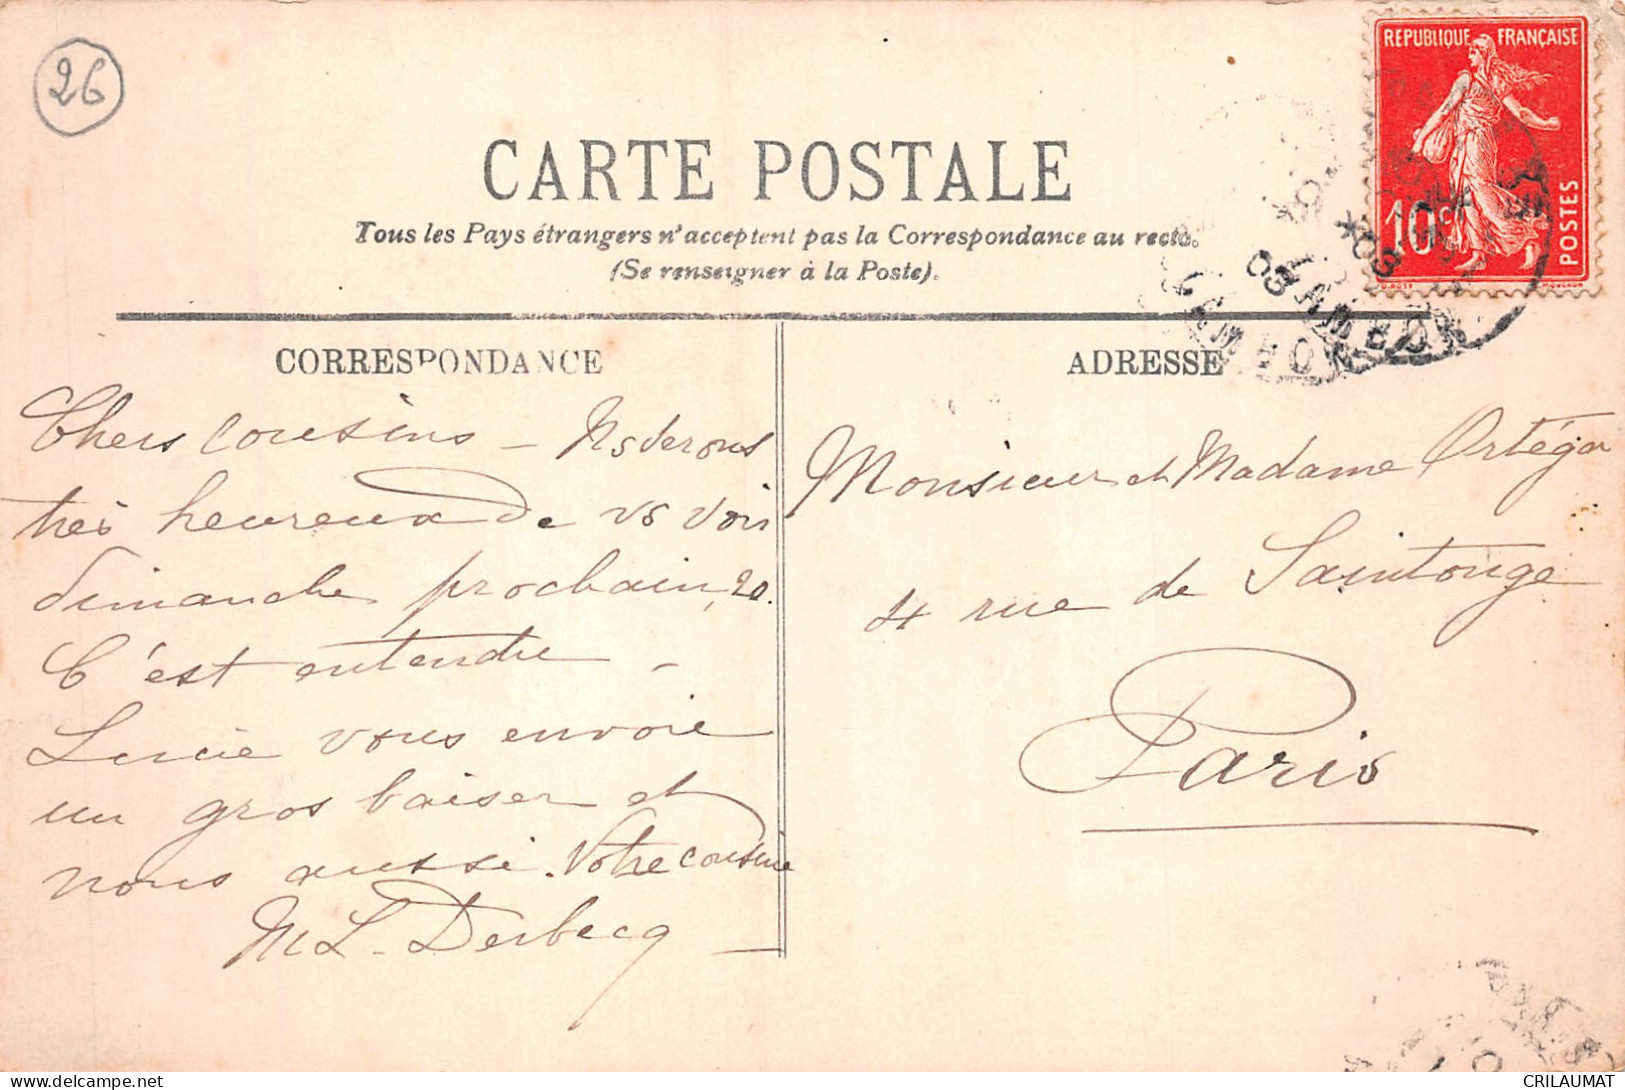 26
REPUBLIQUE FRANÇAISE
10c POSTES
CARTE POSTALE
Tous les Pays étrangers n'acceptent pas la Correspondance au recto.
(Se renseigner à la Poste).
CORRESPONDANCE
ADRESSE
Chers cousins - Ns serons
très heureux de vs voir
dimanche prochain, 20.
C'est entendu -
Lucie vous envoie
un gros baiser et
nous aussi. Votre cousine
M L. Derbecq
Monsieur et Madame Ortéga
4 rue de Saintonge
Paris
CAMBON
CAMBON
PARIS
CRILAUMAT